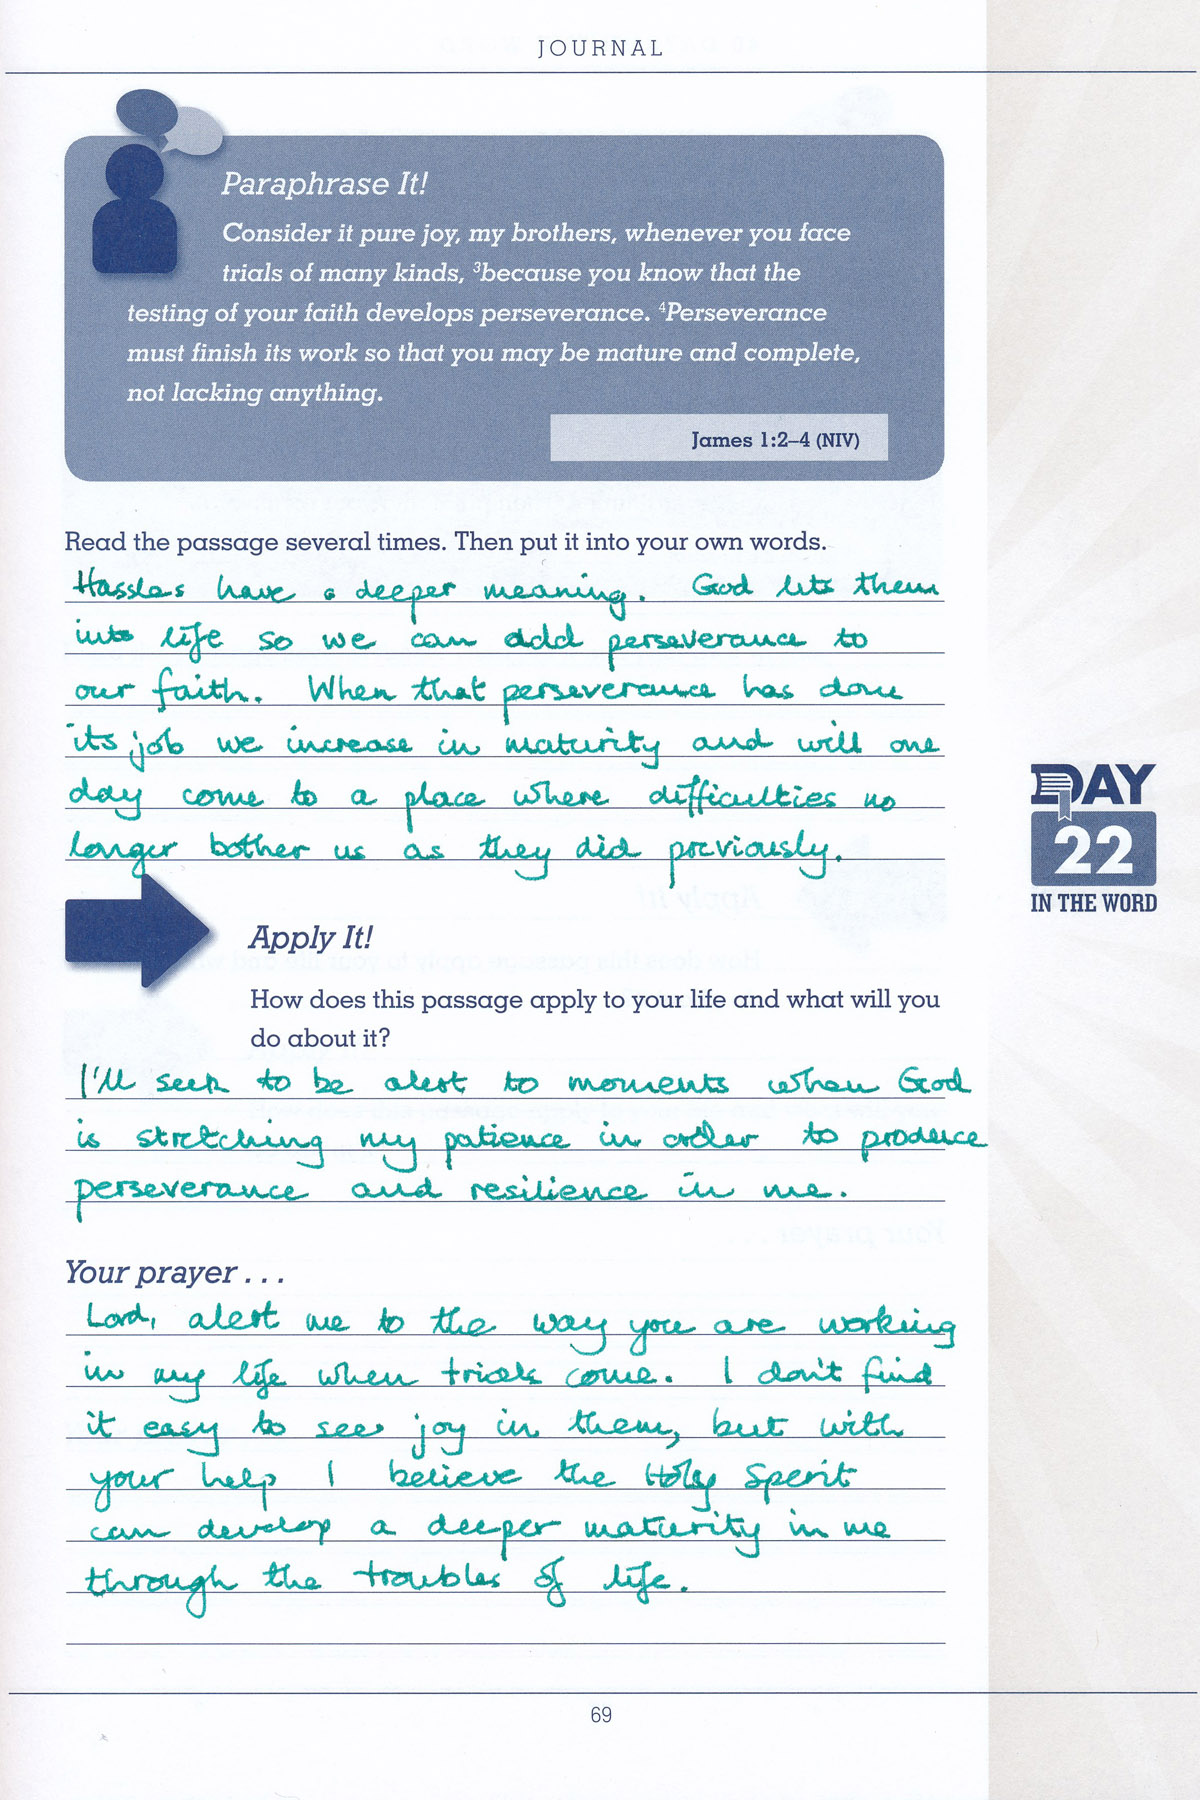 JOURNAL
Paraphrase It!
Consider it pure joy, my brothers, whenever you face
trials of many kinds, ³because you know that the
testing of your faith develops perseverance. ⁴Perseverance
must finish its work so that you may be mature and complete,
not lacking anything.
James 1:2–4 (NIV)
Read the passage several times. Then put it into your own words.
Hassles have a deeper meaning. God lets them
into life so we can add perseverance to
our faith. When that perseverance has done
its job we increase in maturity and will one
day come to a place where difficulties no
longer bother us as they did previously.
DAY
22
IN THE WORD
Apply It!
How does this passage apply to your life and what will you
do about it?
I'll seek to be alert to moments when God
is stretching my patience in order to produce
perseverance and resilience in me.
Your prayer . . .
Lord, alert me to the way you are working
in my life when trials come. I don't find
it easy to see joy in them, but with
your help I believe the Holy Spirit
can develop a deeper maturity in me
through the troubles of life.
69